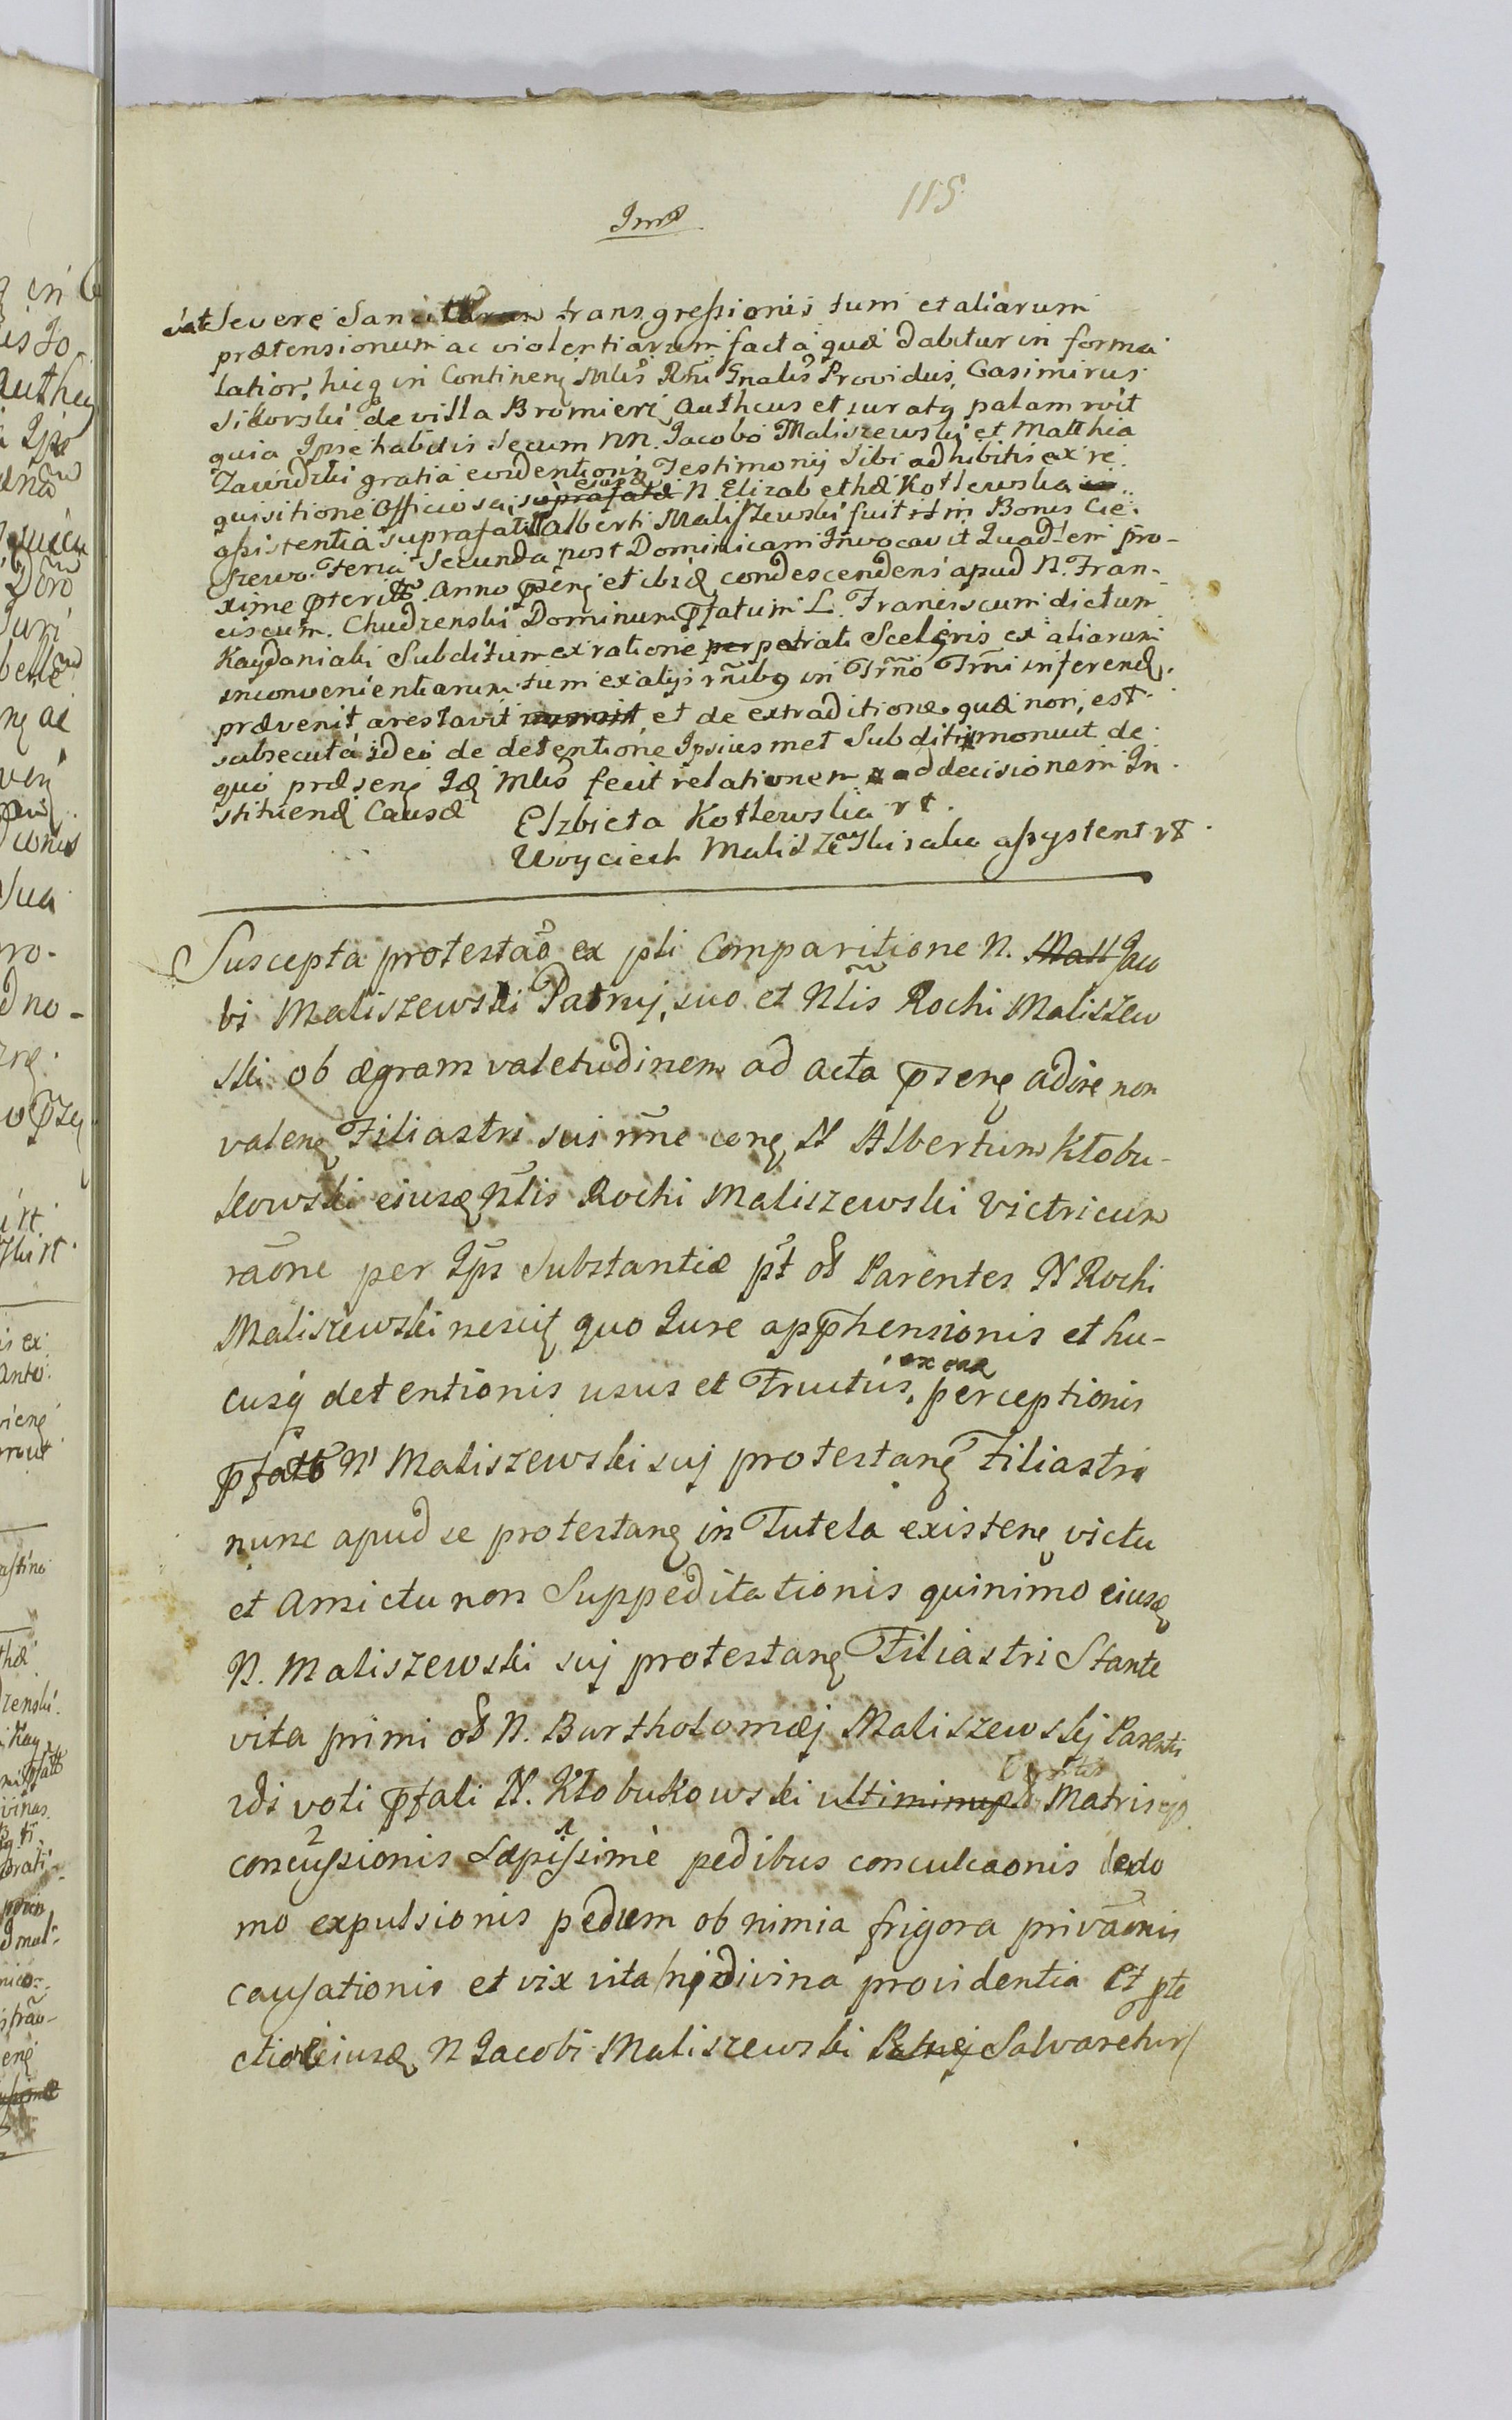 115
Severe transgressionis tum et aliarum
prætensionum ac violentiarum facta quæ dabitur in forma
latior, hicq in Continenę Mlis Rñi Gnalis Providus Casimirus
Sikorski de villa Bromierz Autheus et juratq palam
quia Ipse habitis secum NN. Jacobo Maliszewski et Matthia
Zawidzki gratia evidentioris Testimonij sibi adhibitis ex re
quisitione Officiosa N. Elizabethæ Kotlewska
assistentia suprafati Alberti Maliszewski fuit in Bonis Cie-
szewo Feria Secunda post Dominicam Invocavit Quad-lem pro-
xime Anno et ibid condescendens apud N. Fran-
ciscum Chudzenski Dominum L. Franciscum dictum
Kaydaniak Subditum ex ratione perpetrati Sceleris et aliarum
inconvenientiarum tum ex alijs in Trño Trñi inferendę
prævenit arestavit et de extraditione quæ non est
subsecuta ideo de detentione Ipsiusmet Subditi monuit de
quo præsenę Idę Mlis fecit relationem ad decisionem In
stituendę Causæ
Elzbieta Kotlewska rt.
Woyciech Maliszewski jako assystent rt
Suscepta protestaō ex pti Comparitione N. Matt Jaco
bi Maliszewski Patruj suo et Ntis Rochi Maliszew
ski ob ægram valetudinem ad acta p̄senę adire non
valenę Filiastri sui rñne conę N Albertum Kłobu-
kowski eiusdę Ntis Rochi Maliszewski Victricum
raōne per Ips Substantiæ pt oł Parentes N Rochi
Maliszewski nescitę quo Jure app̄hensionis et hu-
cusq detentionis usus et Fructus, perceptionis
p̄fato N Maliszewski suj protestanę Filiastri
nunc apud se protestanę in Tutela existenę victu
et Amictu non Suppeditationis quinimo eiusdę
N. Maliszewski suj protestanę Filiastri Stante
vita primi oł N. Bartholomæj Maliszewskj Parentis
2di voti p̄fati N. Kłobukowski Matris
concussionis sæpissime pedibus conculcaonis de do
mo expulsionis pedum ob nimia frigora privāōnis
causationis et vix vita nj divina providentia et pte
ctione eiusdę N Jacobi Maliszewski Patruj Salvaretur